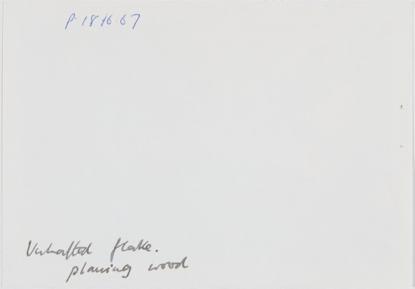 P.1846.67
Unhafted flake.
planing wood